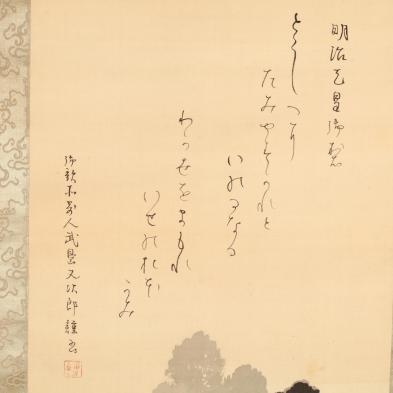 明治天皇御製
とこしへに
たみやすかれと
いのるなる
わか世をまもれ
いせのおほ
かみ
御歌所寄人武島又次郎謹書